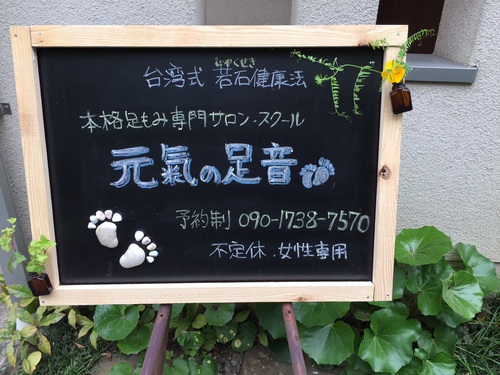 にゃくせき
台湾式 若石健康法
本格足もみ専門サロン・スクール
元氣の足音
予約制 090-1738-7570
不定休・女性専用